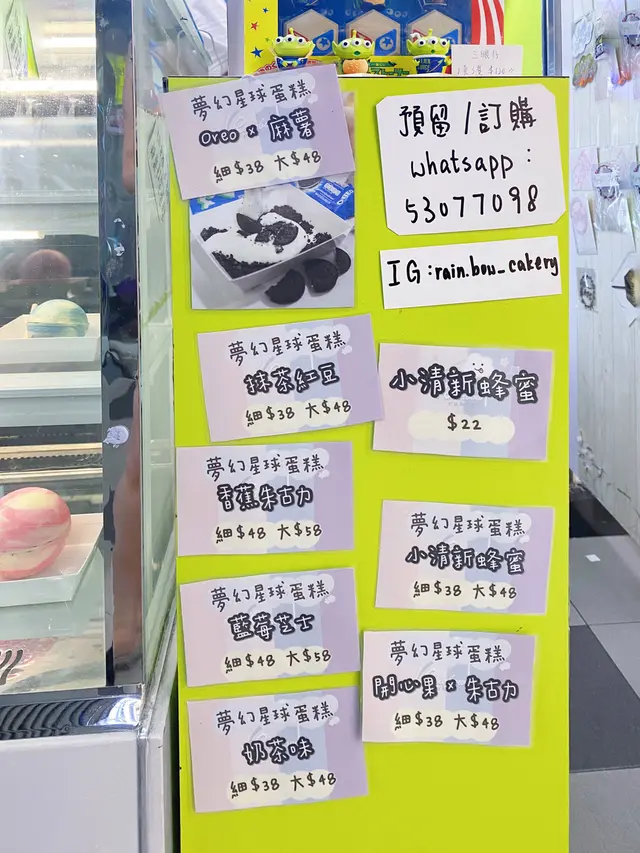 夢幻星球蛋糕
Oreo × 麻薯
細$38 大$48
預留/訂購
whatsapp:
53077098
IG:rain.bow_cakery
夢幻星球蛋糕
抹茶紅豆
細$38 大$48
小清新蜂蜜
$22
夢幻星球蛋糕
香蕉朱古力
細$48 大$58
夢幻星球蛋糕
小清新蜂蜜
細$38 大$48
夢幻星球蛋糕
藍莓芝士
細$48 大$58
夢幻星球蛋糕
開心果 × 朱古力
細$38 大$48
夢幻星球蛋糕
奶茶味
細$38 大$48